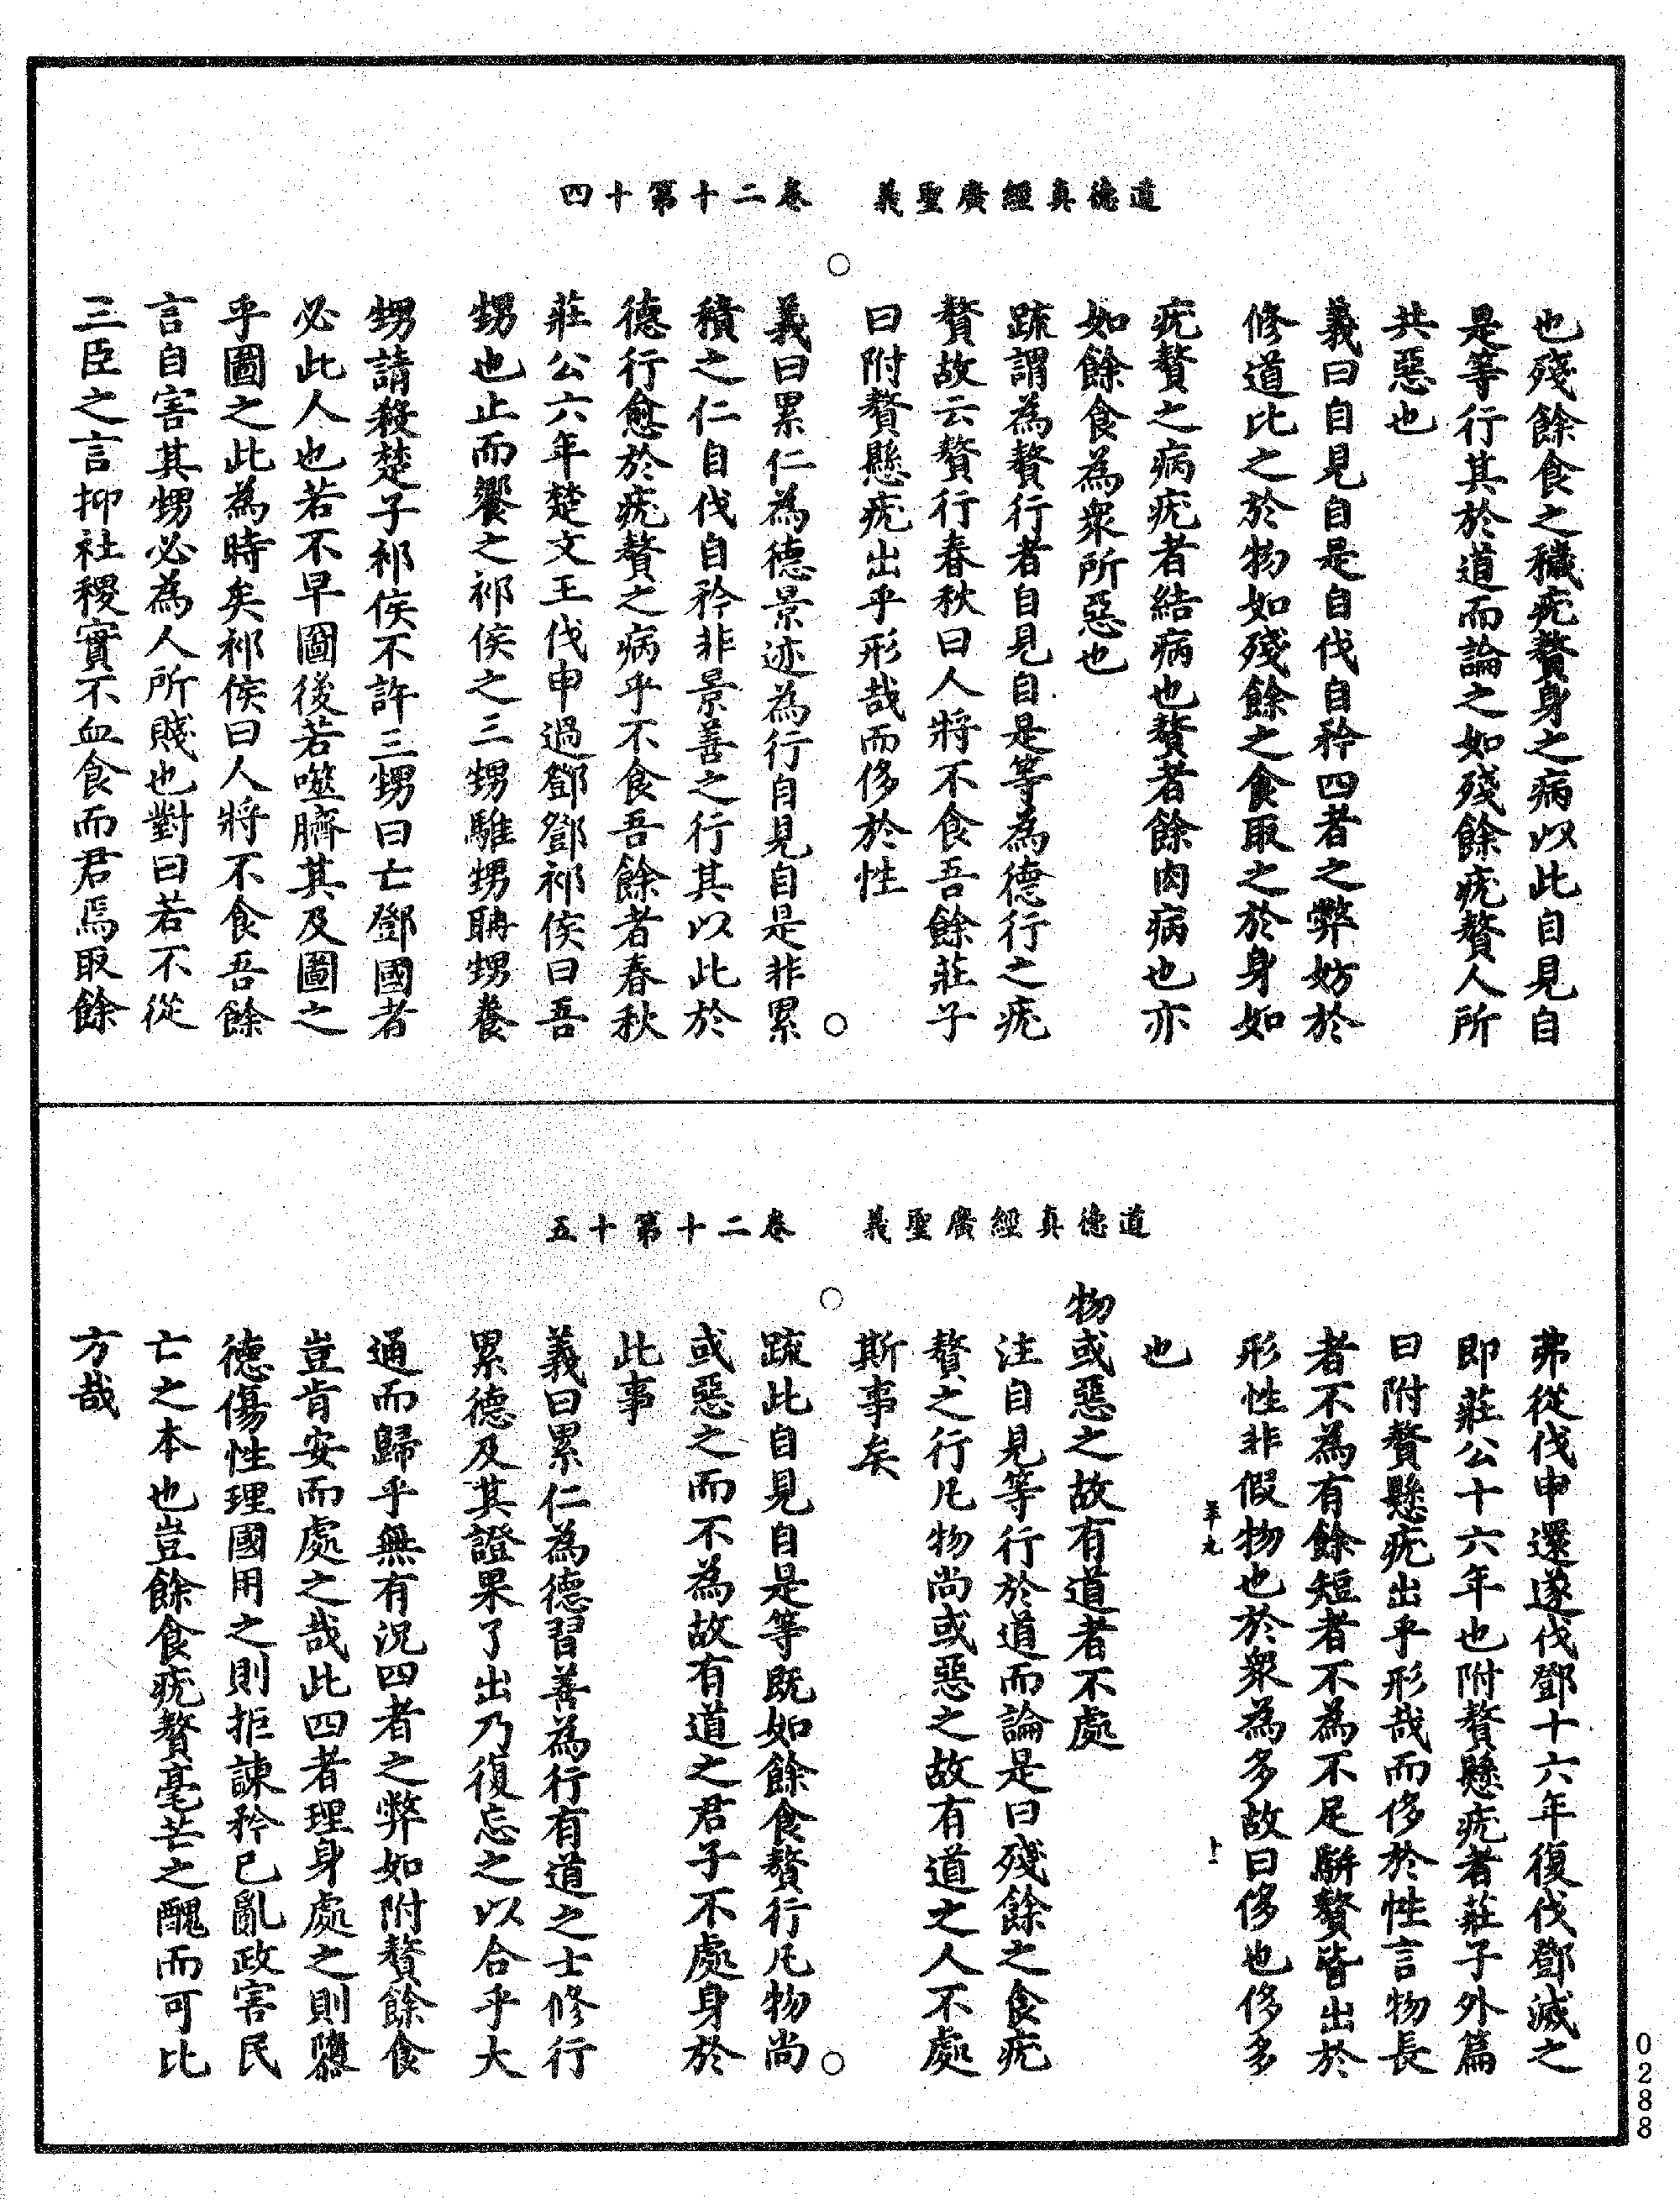 道德真經廣聖義　卷二十第十四
也殘餘食之穢疣贅身之病以此自見自
是等行其於道而論之如殘餘疣贅人所
共惡也
義曰自見自是自伐自矜四者之弊妨於
修道比之於物如殘餘之食取之於身如
疣贅之病疣者結病也贅者餘肉病也亦
如餘食為衆所惡也
疏謂為贅行者自見自是等為德行之疣
贅故云贅行春秋曰人將不食吾餘莊子
曰附贅懸疣出乎形哉而侈於性
義曰累仁為德景迹為行自見自是非累
積之仁自伐自矜非景善之行其以此於
德行愈於疣贅之病乎不食吾餘者春秋
莊公六年楚文王伐申過鄧鄧祁侯曰吾
甥也止而饗之祁侯之三甥騅甥聃甥養
甥請殺楚子祁侯不許三甥曰亡鄧國者
必此人也若不早圖後若噬臍其及圖之
乎圖之此為時矣祁侯曰人將不食吾餘
言自害其甥必為人所賤也對曰若不從
三臣之言抑社稷實不血食而君焉取餘
道德真經廣聖義　卷二十第十五
弗從伐申還遂伐鄧十六年復伐鄧滅之
即莊公十六年也附贅懸疣者莊子外篇
曰附贅懸疣出乎形哉而侈於性言物長
者不為有餘短者不為不足駢贅皆出於
形性非假物也於衆為多故曰侈也侈多
也
物或惡之故有道者不處
注自見等行於道而論是曰殘餘之食疣
贅之行凡物尚或惡之故有道之人不處
斯事矣
疏此自見自是等既如餘食贅行凡物尚
或惡之而不為故有道之君子不處身於
此事
義曰累仁為德習善為行有道之士修行
累德及其證果了出乃復忘之以合乎大
通而歸乎無有況四者之弊如附贅餘食
豈肯安而處之哉此四者理身處之則隳
德傷性理國用之則拒諫矜已亂政害民
亡之本也豈餘食疣贅毫芒之醜而可比
方哉
0288